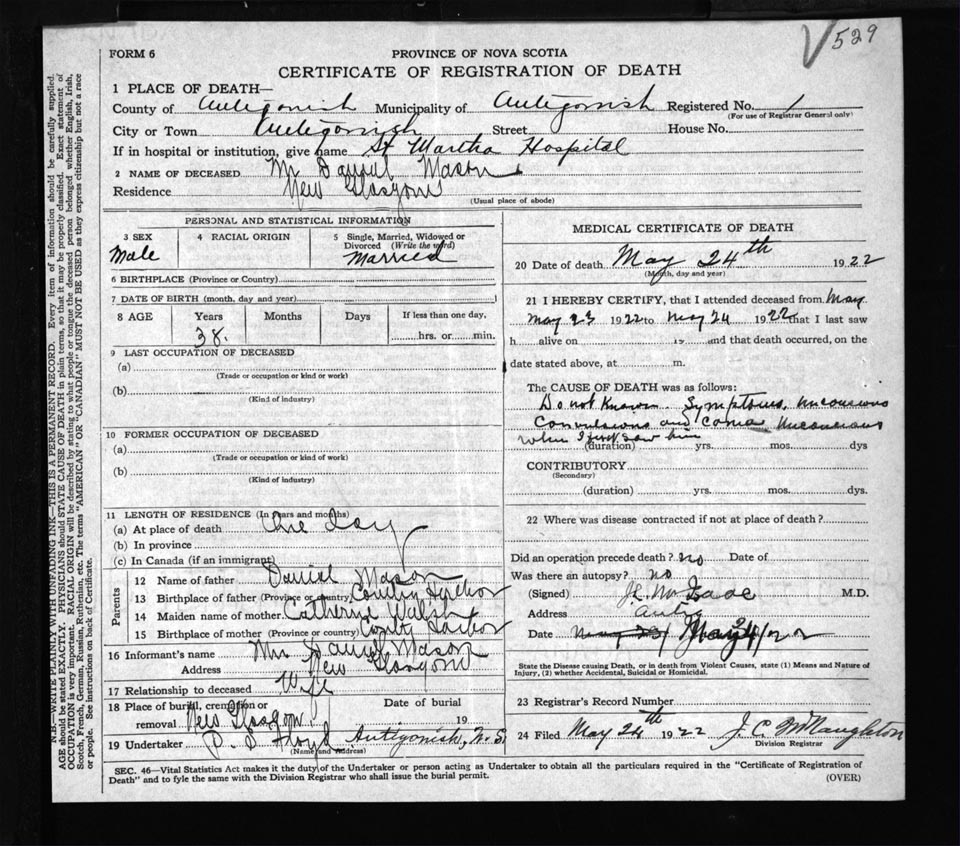 V 529
FORM 6
PROVINCE OF NOVA SCOTIA
CERTIFICATE OF REGISTRATION OF DEATH
1 PLACE OF DEATH—
County of Antigonish Municipality of Antigonish Registered No. 1
(For use of Registrar General only)
City or Town Antigonish Street House No.
If in hospital or institution, give name St Martha Hospital
2 NAME OF DECEASED Mr Daniel Mason
Residence New Glasgow
(Usual place of abode)
PERSONAL AND STATISTICAL INFORMATION
3 SEX
Male
4 RACIAL ORIGIN
5 Single, Married, Widowed or Divorced (Write the word)
Married
6 BIRTHPLACE (Province or Country)
7 DATE OF BIRTH (month, day and year)
8 AGE Years Months Days If less than one day,
38. hrs. or min.
9 LAST OCCUPATION OF DECEASED
(a)
(Trade or occupation or kind or work)
(b)
(Kind of industry)
10 FORMER OCCUPATION OF DECEASED
(a)
(Trade or occupation or kind or work)
(b)
(Kind of industry)
11 LENGTH OF RESIDENCE (In years and months)
(a) At place of death One Day
(b) In province
(c) In Canada (if an immigrant)
Parents
12 Name of father Daniel Mason
13 Birthplace of father (Province or country) Country Harbor
14 Maiden name of mother Catherine Walsh
15 Birthplace of mother (Province or country) Country Harbor
16 Informant's name Mrs Daniel Mason
Address New Glasgow
17 Relationship to deceased Wife
18 Place of burial, cremation or removal New Glasgow Date of burial 19
19 Undertaker P. S. Floyd Antigonish, N.S.
(Name and Address)
MEDICAL CERTIFICATE OF DEATH
20 Date of death May 24th 1922
(Month, day and year)
21 I HEREBY CERTIFY, that I attended deceased from May
May 23 1922 to May 24 1922 that I last saw
h alive on 19 and that death occurred, on the
date stated above, at m.
The CAUSE OF DEATH was as follows:
Do not Known. Symptoms, unconsious
Convulsions and coma unconsious
when I first saw him
(duration) yrs. mos. dys
CONTRIBUTORY
(Secondary)
(duration) yrs. mos. dys.
22 Where was disease contracted if not at place of death?
Did an operation precede death? no Date of
Was there an autopsy? no
(Signed) McIsaac M.D.
Address Antig
Date May 24/22
State the Disease causing Death, or in death from Violent Causes, state (1) Means and Nature of Injury, (2) whether Accidental, Suicidal or Homicidal.
23 Registrar's Record Number
24 Filed May 24th 1922 J. C. McNaughton
Division Registrar
SEC. 46—Vital Statistics Act makes it the duty of the Undertaker or person acting as Undertaker to obtain all the particulars required in the "Certificate of Registration of
Death" and to fyle the same with the Division Registrar who shall issue the burial permit. (OVER)
N.B.—WRITE PLAINLY WITH UNFADING INK—THIS IS A PERMANENT RECORD. Every item of information should be carefully supplied.
AGE should be stated EXACTLY. PHYSICIANS should STATE CAUSE OF DEATH in plain terms, so that it may be properly classified. Exact statement of
OCCUPATION is very important. RACIAL ORIGIN will be described by stating to what people or tongue the deceased person belonged whether English, Irish,
Scotch, French, German, Russian, Ruthenian, etc. The terms "AMERICAN" OR "CANADIAN" MUST NOT BE USED as they express citizenship but not a race
or people. See instructions on back of Certificate.